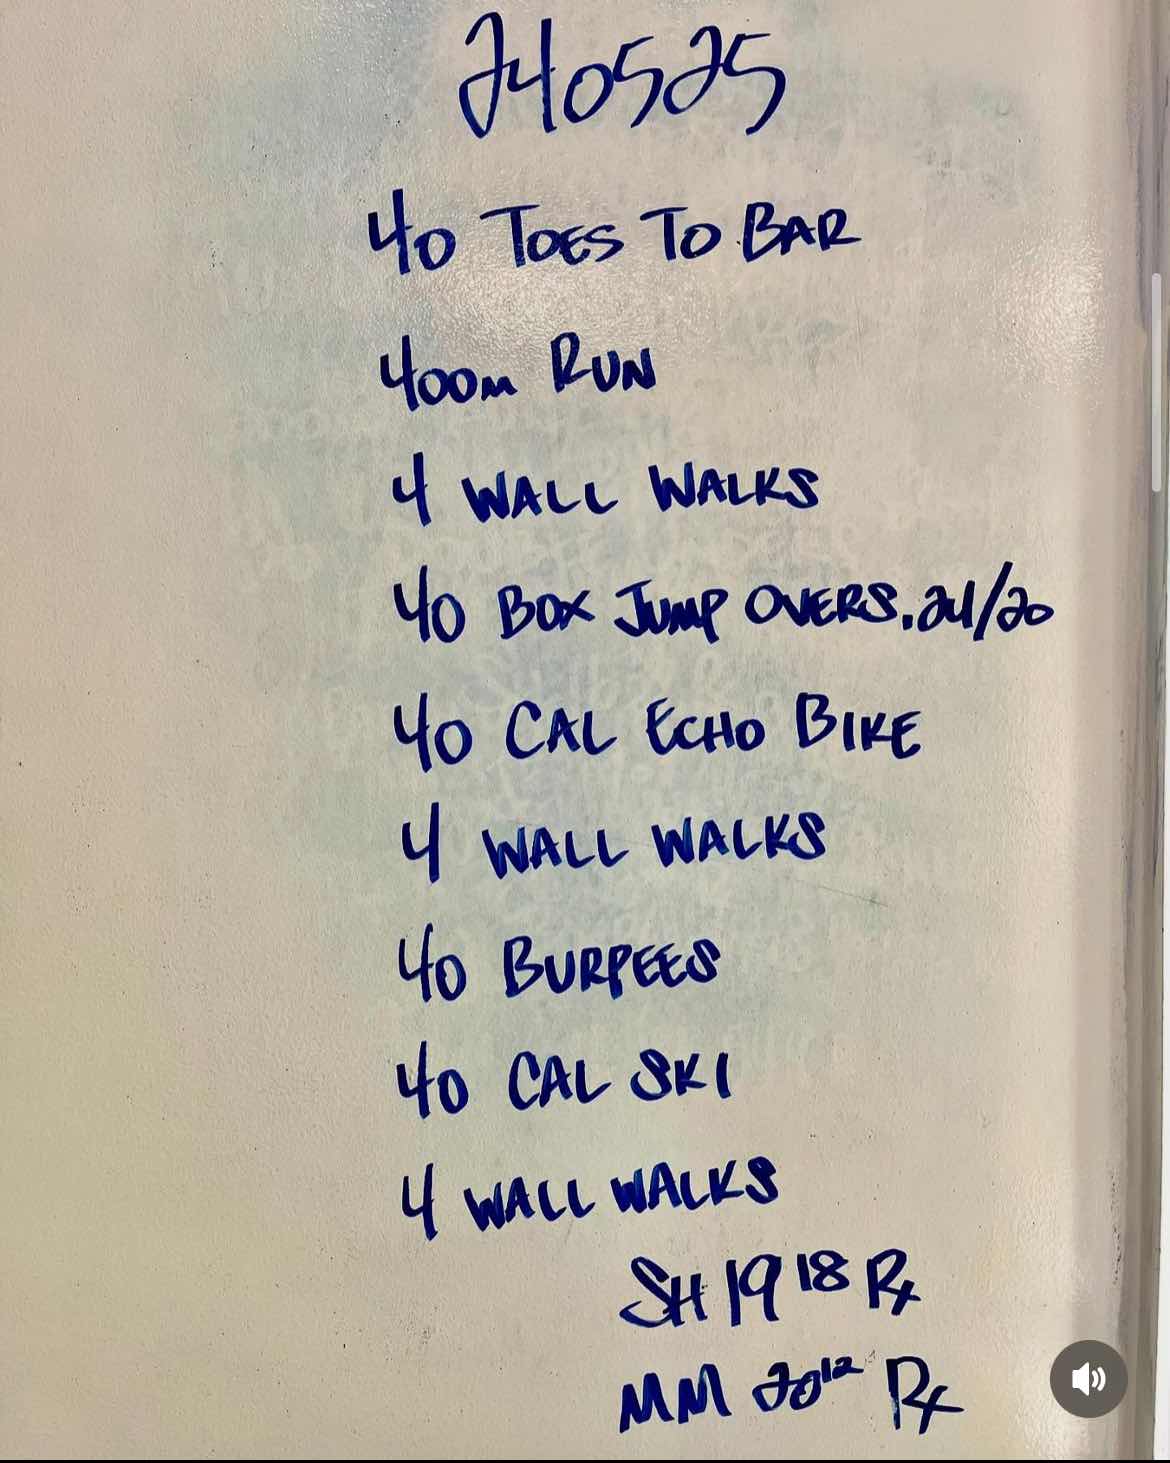 240525
40 TOES TO BAR
400M RUN
4 WALL WALKS
40 BOX JUMP OVERS.24/20
40 CAL ECHO BIKE
4 WALL WALKS
40 BURPEES
40 CAL SKI
4 WALL WALKS
SH 19 18 Rx
MM 20 12 Rx